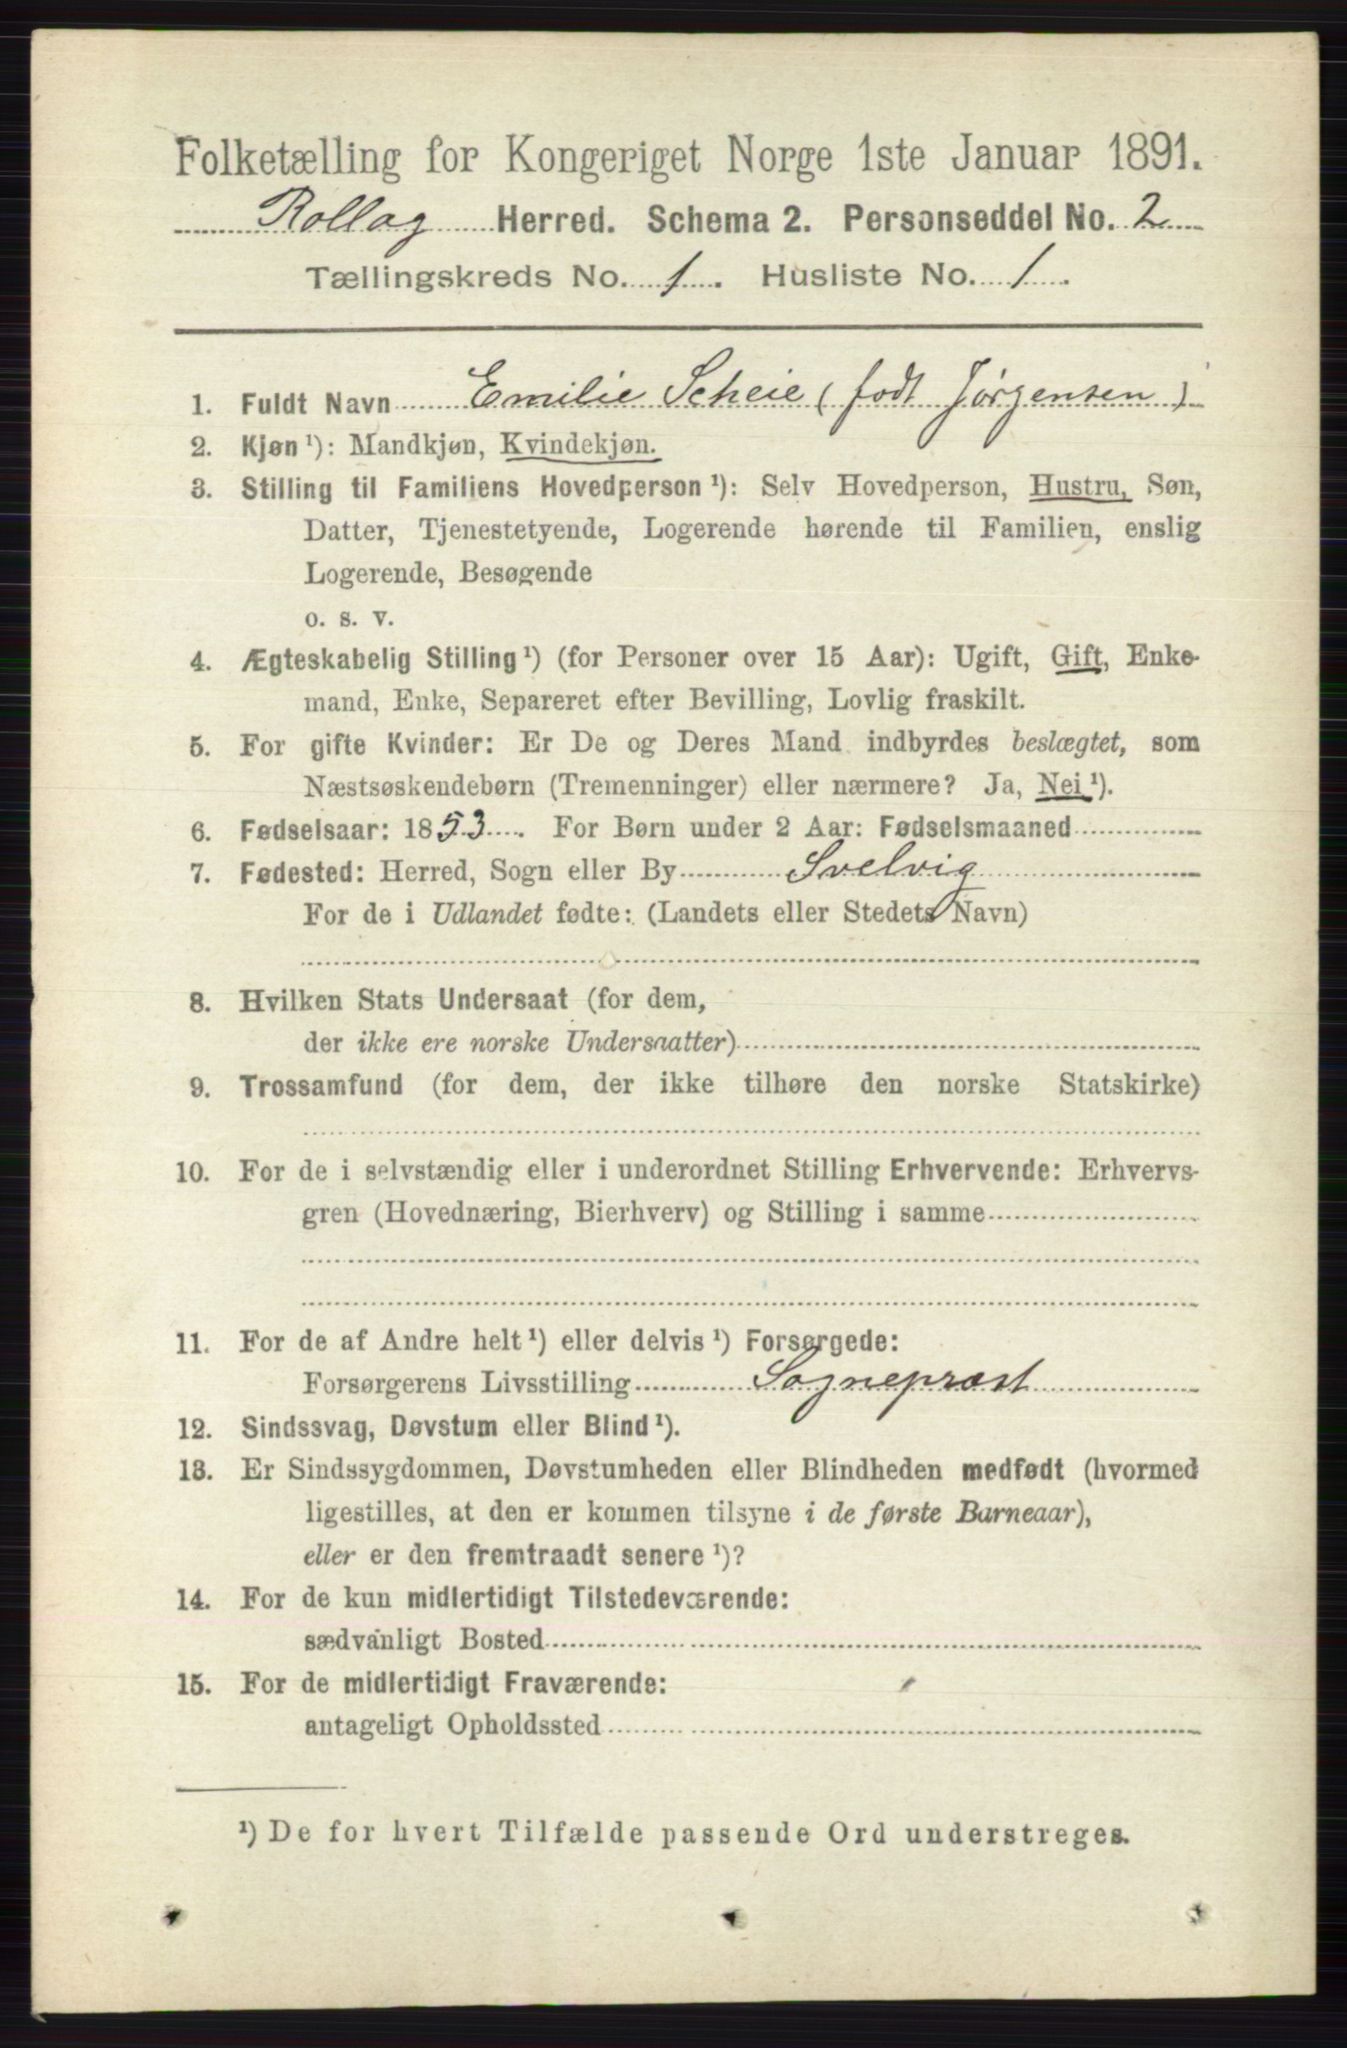 Folketælling for Kongeriget Norge 1ste Januar 1891.
Rollag Herred. Schema 2. Personseddel No. 2
Tællingskreds No. 1. Husliste No. 1.
1. Fuldt Navn Emilie Scheie (født Jørgensen)
2. Kjøn ¹): Mandkjøn, Kvindekjøn.
3. Stilling til Familiens Hovedperson ¹): Selv Hovedperson, Hustru, Søn,
Datter, Tjenestetyende, Logerende hørende til Familien, enslig
Logerende, Besøgende
o. s. v.
4. Ægteskabelig Stilling ¹) (for Personer over 15 Aar): Ugift, Gift, Enke-
mand, Enke, Separeret efter Bevilling, Lovlig fraskilt.
5. For gifte Kvinder: Er De og Deres Mand indbyrdes beslægtet, som
Næstsøskendebørn (Tremenninger) eller nærmere? Ja, Nei ¹).
6. Fødselsaar: 1853. For Børn under 2 Aar: Fødselsmaaned
7. Fødested: Herred, Sogn eller By Svelvig
For de i Udlandet fødte: (Landets eller Stedets Navn)
8. Hvilken Stats Undersaat (for dem,
der ikke ere norske Undersaatter)
9. Trossamfund (for dem, der ikke tilhøre den norske Statskirke)
10. For de i selvstændig eller i underordnet Stilling Erhvervende: Erhvervs-
gren (Hovednæring, Bierhverv) og Stilling i samme
11. For de af Andre helt ¹) eller delvis ¹) Forsørgede:
Forsørgerens Livsstilling Sognepræst
12. Sindssvag, Døvstum eller Blind ¹).
13. Er Sindssygdommen, Døvstumheden eller Blindheden medfødt (hvormed
ligestilles, at den er kommen tilsyne i de første Barneaar),
eller er den fremtraadt senere ¹)?
14. For de kun midlertidigt Tilstedeværende:
sædvanligt Bosted
15. For de midlertidigt Fraværende:
antageligt Opholdssted
¹) De for hvert Tilfælde passende Ord understreges.